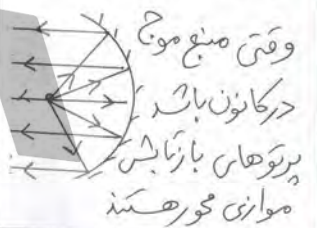 وقتی منبع موج
درکانون باشد
پرتوهای بازتابش
موازی محور هستند